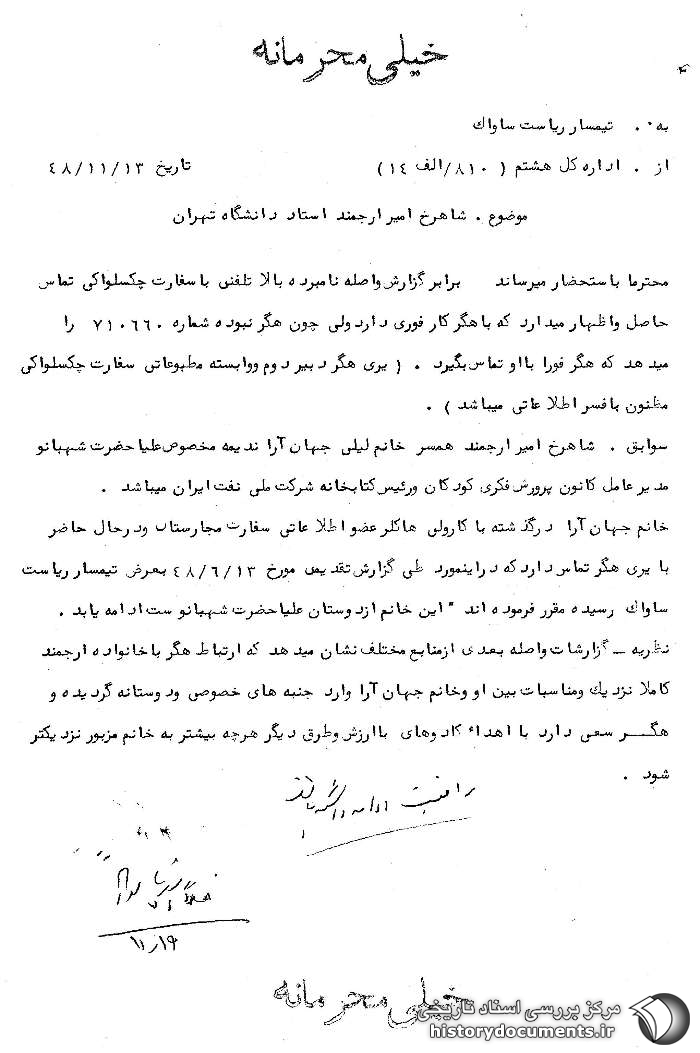 خیلی محرمانه
به . تیمسار ریاست ساواك
از . اداره کل هشتم ( ۸۱۰/الف ۱۴) تاریخ ۴۸/۱۱/۱۳
موضوع . شاهرخ امیر ارجمند استاد دانشگاه تهران
محترما باستحضار میرساند برابر گزارش واصله نامبرده بالا تلفنی با سفارت چکسلواکی تماس
حاصل و اظهار میدارد که با هگر کار فوری دارد ولی چون هگر نبوده شماره ۷۱۰۶۶۰ را
میدهد که هگر فورا با او تماس بگیرد . ( یری هگر دبیر دوم ووابسته مطبوعاتی سفارت چکسلواکی
مظنون بافسر اطلاعاتی میباشد ) .
سوابق . شاهرخ امیر ارجمند همسر خانم لیلی جهان آرا ندیمه مخصوص علیا حضرت شهبانو
مدیر عامل کانون پرورش فکری کودکان ورئیس کتابخانه شرکت ملی نفت ایران میباشد .
خانم جهان آرا درگذشته با کارولی هاکلر عضو اطلاعاتی سفارت مجارستان ودرحال حاضر
با یری هگر تماس دارد که دراینمورد طی گزارش تقدیمی مورخ ۴۸/۶/۱۳ بعرض تیمسار ریاست
ساواك رسیده مقرر فرموده اند " این خانم از دوستان علیا حضرت شهبانو ست ادامه یابد .
نظریه ـ گزارشات واصله بعدی ازمنابع مختلف نشان میدهد که ارتباط هگر با خانواده ارجمند
کاملا نزدیك ومناسبات بین او وخانم جهان آرا وارد جنبه های خصوصی ودوستانه گردیده و
هگـــر سعی دارد با اهداء کادوهای باارزش وطرق دیگر هرچه بیشتر به خانم مزبور نزدیکتر
شود .
۱۱/۱۹
خیلی محرمانه
مرکز بررسی اسناد تاریخی
historydocuments.ir